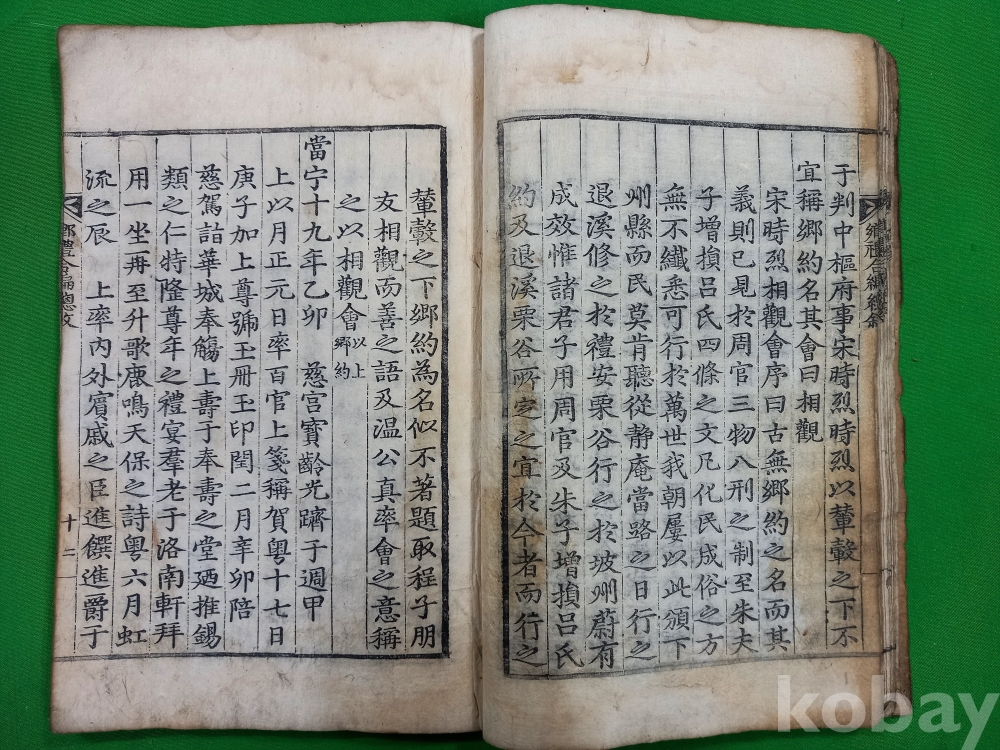 于判中樞府事宋時烈時烈以輦轂之下不
宜稱鄉約名其會曰相觀
宋時烈相觀會序曰古無鄉約之名而其
義則已見於周官三物八刑之制至朱夫
子增損呂氏四條之文凡化民成俗之方
無不纖悉可行於萬世我朝屢以此頒下
州縣而民莫肯聽從靜庵當路之日行之
退溪修之於禮安栗谷行之於坡州蔚有
成效惟諸君子用周官及朱子增損呂氏
約及退溪栗谷所定之宜於今者而行之
輦轂之下鄉約為名似不著題取程子朋
友相觀而善之語及溫公真率會之意稱
之以相觀會以上鄉約
當宁十九年乙卯 慈宮寶齡光躋于週甲
上以月正元日率百官上箋稱賀粵十七日
庚子加上尊號玉冊玉印閏二月辛卯陪
慈駕詣華城奉觴上壽于奉壽之堂廼推錫
類之仁特隆尊年之禮宴羣老于洛南軒拜
用一坐再至升歌鹿鳴天保之詩粵六月虹
流之辰 上率內外賓戚之臣進饌進爵于
鄉禮合編總敘
十二
kobay